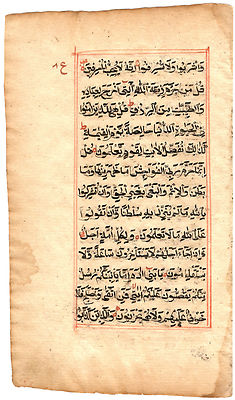 واشربوا ولا تسرفوا انه لا يحب المسرفين
قل من حرم زينة الله التي اخرج لعباده
والطيبت من الرزق قل هي للذين امنوا
في الحيوة الدنيا خالصة يوم القيمة
كذلك نفصل الايت لقوم يعلمون قل
انما حرم ربي الفواحش ما ظهر منها وما
بطن والاثم والبغي بغير الحق وان تشركوا
بالله ما لم ينزل به سلطنا وان تقولوا
على الله ما لا تعلمون ولكل امة اجل
فاذا جاء اجلهم لا يستاخرون ساعة ولا
يستقدمون يبني ادم اما ياتينكم رسل
منكم يقصون عليكم ايتي فمن اتقى واصلح فلا
خوف عليهم ولا هم يحزنون والذين كذبوا